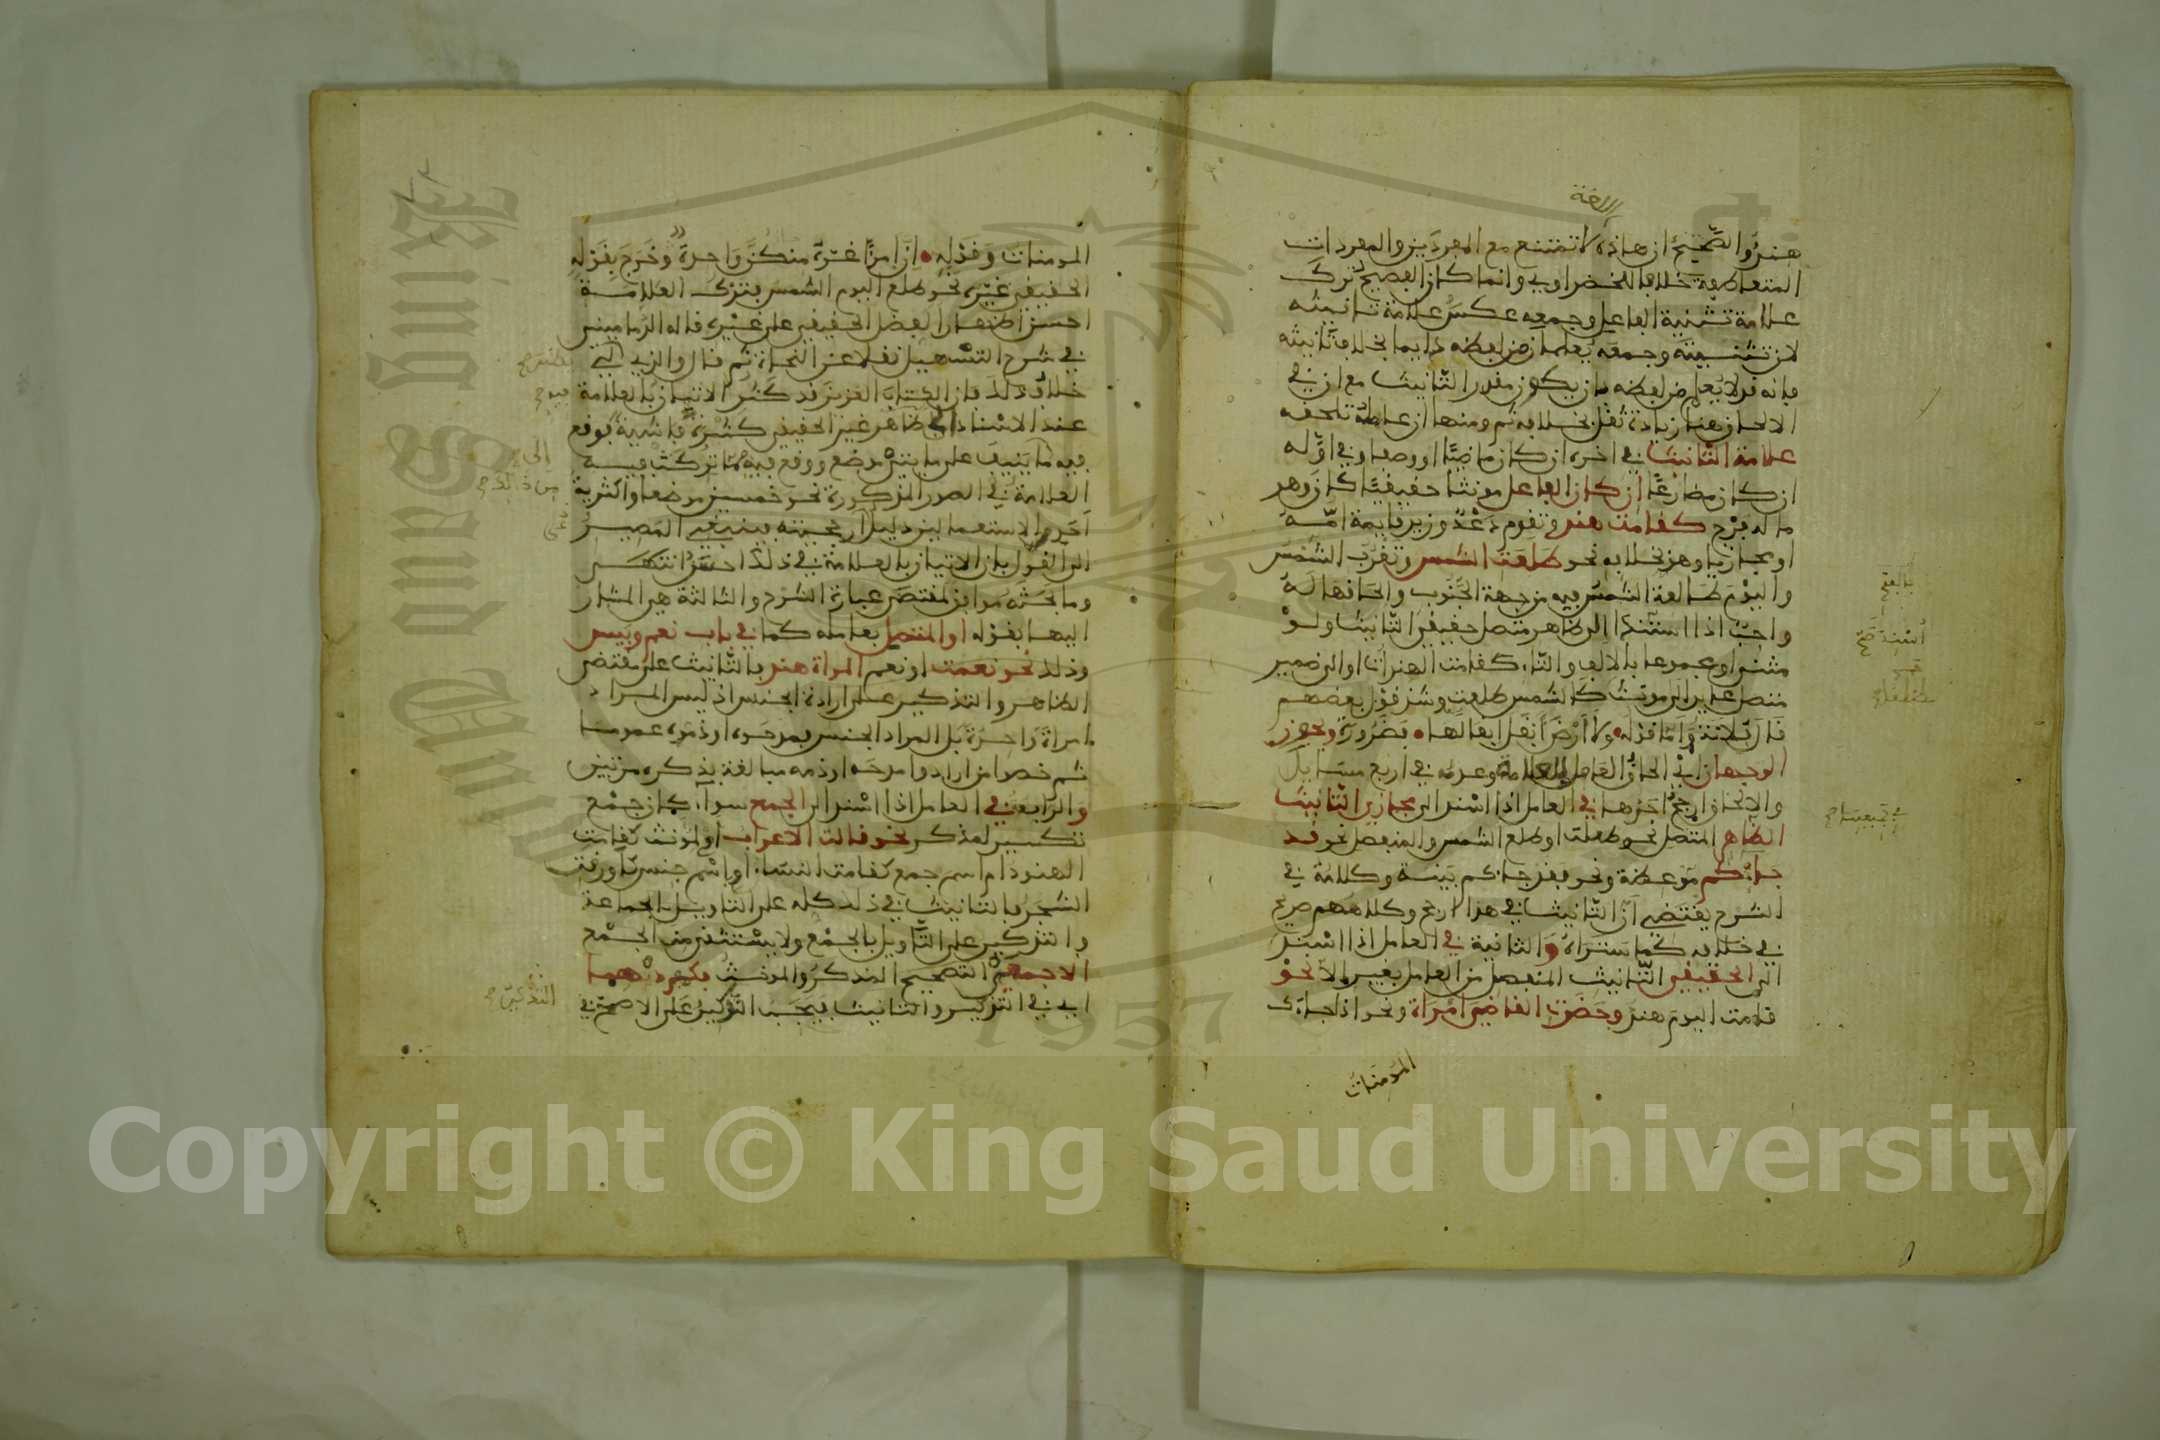 اللغة
هند والصحيح ان هاذه لا تمتنع مع المفردين والمفردات
المتعاطفة خلافا للخضراوي وانما كان الفصيح ترك
علامة تثنية الفاعل وجمعه عكس علامة تانيثه
لان تثنيته وجمعه يعلمان من لفظه دايما بخلاف تانيثه
فانه قد لا يعلم من لفظه بان يكون مقدر التانيث مع ان في
الالحاق هنا زيادة ثقل بخلافه ثم ومنها ان عامله تلحقه
علامة التانيث في اخره ان كان ماضيا او وصفا وفي اوله
ان كان مضارعا ان كان الفاعل مونثا حقيقيا كان وهو
ما له فرج كقامت هند وتقوم دعد وزيد قايمة امه
او مجازيا وهو بخلافه نحو طلعت الشمس وتغرب الشمس
واليوم طالعة الشمس فيه من جهة الجنوب والحاقها له
واجب اذا استند الى ظاهر متصل حقيقي التانيث ولو
مثنى او مجموعا بالالف والتاء كقامت الهندات او الى ضمير
متصل عايد الى مونث كالشمس طلعت وشذ قول بعضهم
قال فلانة واما قوله ولا ارض ابقل ابقالها فضرورة ويجوز
الوجهان اي الحاق العامل العلامة وعدمه في اربع مسايل
والالحاق ارجح احدها في العامل اذا اسند الى مجازي التانيث
الظاهر المتصل نحو طلعت او طلع الشمس والمنفصل نحو قد
جاءتكم موعظة ونحو فقد جاءكم بينة وكلامه في
الشرح يقتضي ان التانيث في هذا ارجح وكلامهم صريح
في خلافه كما ستراه والثانية في العامل اذا اسند
الى الحقيقي التانيث المنفصل من العامل بغير الا نحو
قامت اليوم هند وحضرت القاضي امراة ونحو اذا جاءك
المومنات
بالفتح
اسند صح
المومنات وقوله ان امرا غره منكن واحدة وخرج بقوله
الحقيقي غيره نحو طلع اليوم الشمس بترك العلامة
احسن اظهارا لفضل الحقيقي على غيره قاله الدماميني
في شرح التسهيل نقلا عن النحاة ثم قال والذي الي
خلاف ذلك فان الكتاب العزيز قد كثر الاتيان بالعلامة
عند الاسناد الى ظاهر غير الحقيقي كثرة فاشية فوقع
فيه ما ينيف على مايتي موضع ووقع فيه مما تركت فيه
العلامة في الصور المذكورة نحو خمسين موضعا واكثرية
احد الاستعمالين دليل ارجحيته فينبغي المصير
الى القول بان الاتيان بالعلامة في ذلك احسن انتهى
وما بحثه موافق لمقتضى عبارة الشرح والثالثة هي المشار
اليها بقوله او المتصل بعامله كما في باب نعم وبيس
وذلك نحو نعمت او نعم المراة هند بالتانيث على مقتضى
الظاهر والتذكير على ارادة الجنس اذ ليس المراد
امراة واحدة بل المراد الجنس فمدحوه او ذموه عموما
ثم خصوا من ارادوا مدحه او ذمه مبالغة بذكره مرتين
والرابعة في العامل اذا اسند الى الجمع سواء كان جمع
تكسير لمذكر نحو قالت الاعراب او لمونث كقامت
الهنود ام اسم جمع كقامت النساء او اسم جنس كاورقت
الشجر فالتانيث في ذلك كله على التاويل بالجماعة
والتذكير على التاويل بالجمع ولا يستثنى من الجمع
الا جمعي التصحيح المذكر والمونث فكمفرديهما
اي في التذكير والتانيث فيجب التذكير على الاصح في
يظهر صح
فيه صح
الى صح
من ذلك صح
التذكير صح